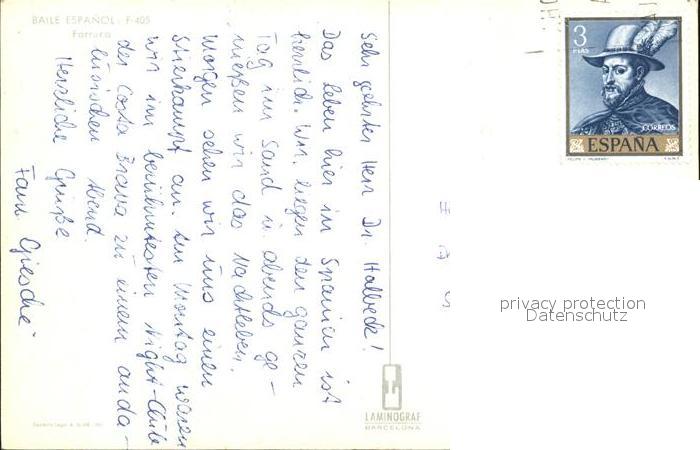 BAILE ESPAÑOL - F-405
Farruca
Sehr geehrter Herr Dr. Halbede!
Das Leben hier in Spanien ist
herrlich. Wir liegen den ganzen
Tag im Sand u. abends ge-
nießen wir das Nachtleben.
Morgen sehen wir uns einen
Stierkampf an. Am Montag waren
wir im berühmtesten Night-Club
der Costa Brava zu einem anda-
lusischen Abend.
Herzliche Grüße
Fam. Giesche
3
PTAS
CORREOS
ESPAÑA
LAMINOGRAF
BARCELONA
privacy protection
Datenschutz